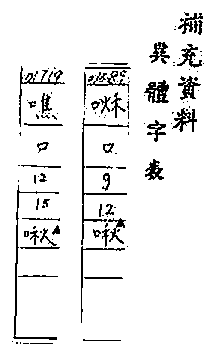 補充資料
異體字表
01589
𠲿
口
9
12
啾▲
01719
噍
口
12
15
啾▲